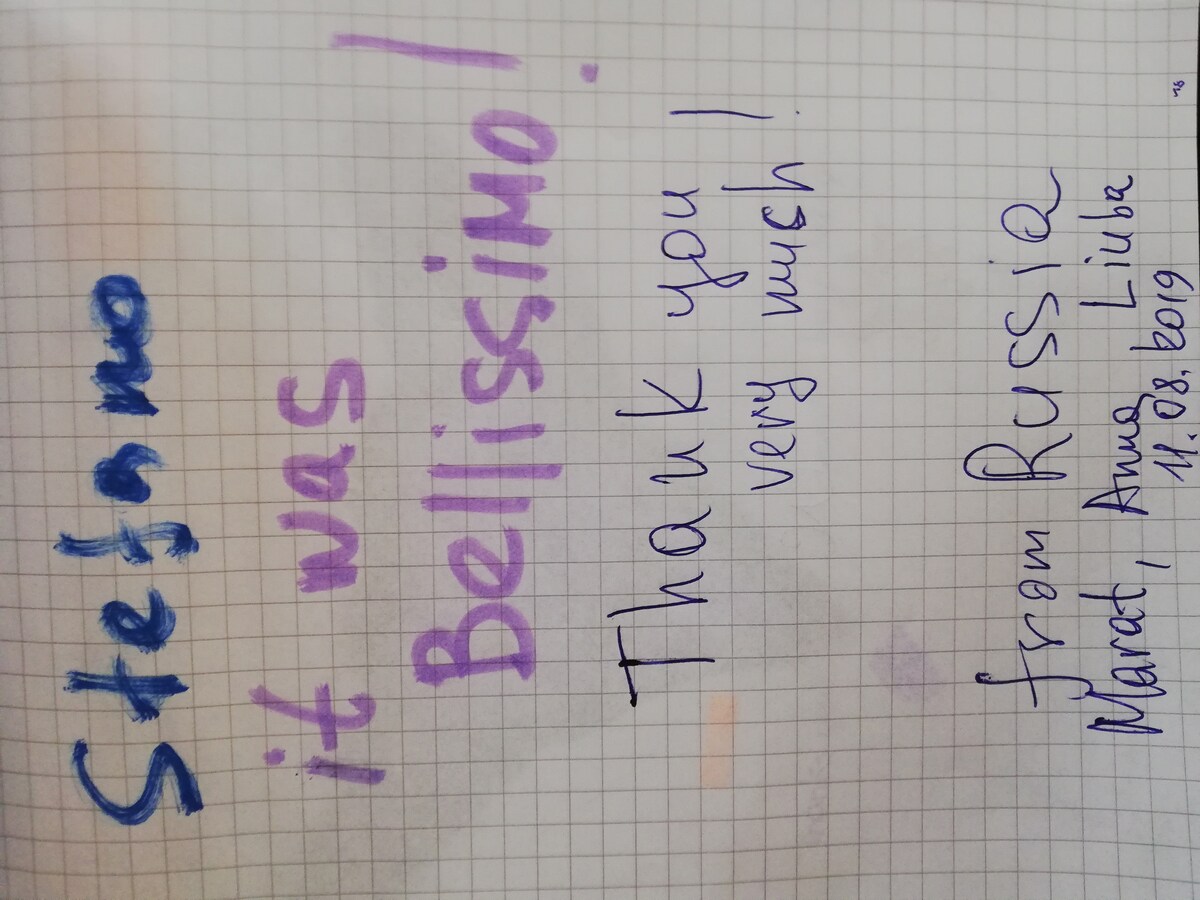 Stefano
it was
Bellissimo!
Thank you
very much!
from Russia
Marat, Anna Liuba
11.08.2019